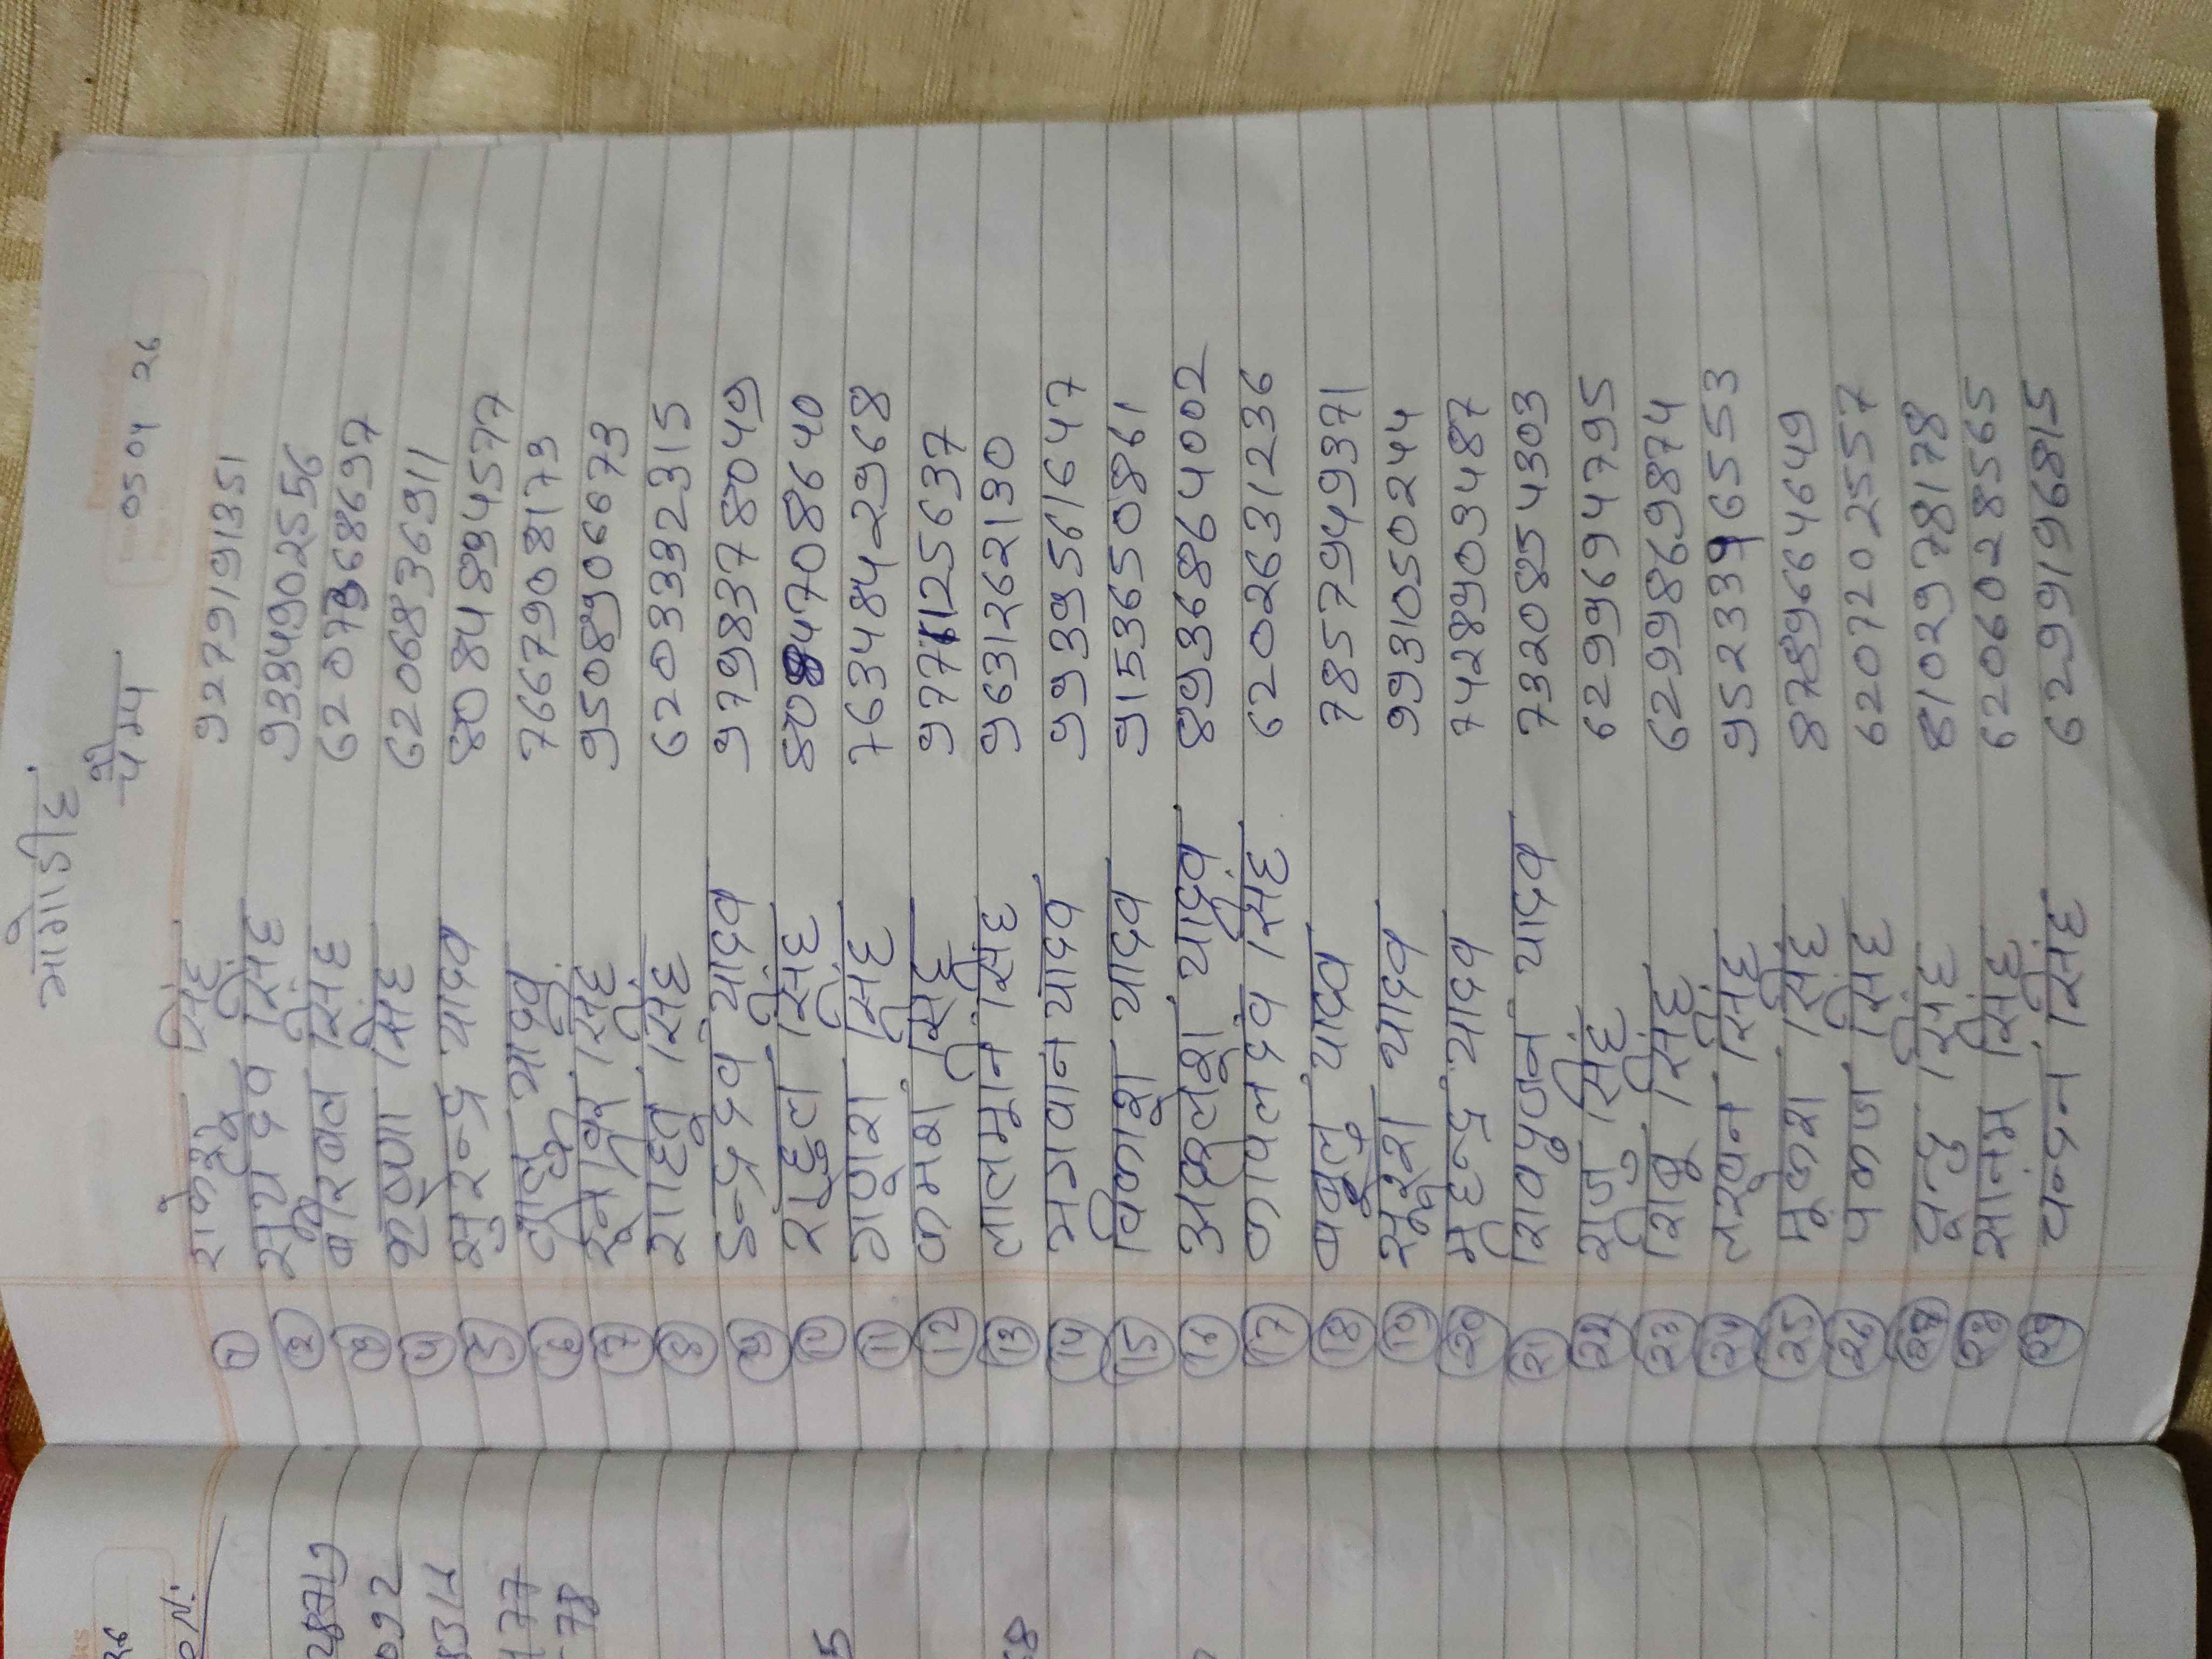 मोगाडीह
कैम्प 05 04 26
1 राकेश सिंह 9279191351
2 सूर्य देव सिंह 9334902556
3 बीरबल सिंह 6207368697
4 कृष्णा सिंह 6206836911
5 सुरेन्द्र यादव 8084894577
6 यादव 7667908173
7 सिंह 9508906673
8 सिंह 6203392315
9 इन्द्रदेव यादव 9798378049
10 राहुल सिंह 8084708640
11 गणेश सिंह 7634842968
12 कमेश सिंह 9771125637
13 लालमुनि सिंह 9631262130
14 भगवान यादव 9939561647
15 विकाश यादव 9153650861
16 अखलेश यादव 8936864002
17 कपिलदेव सिंह 6202631236
18 बबलु यादव 7857949371
19 सुरेश यादव 9931050244
20 महेन्द्र यादव 7428903487
21 शिवपुजन यादव 7320854303
22 राजु सिंह 6299694795
23 शिबु सिंह 6299869874
24 लखन सिंह 9523396553
25 मुकेश सिंह 8789664649
26 पंकज सिंह 6207202557
27 सिंह 8102978178
28 सोनम सिंह 6206028565
29 चंदन सिंह 6299196815